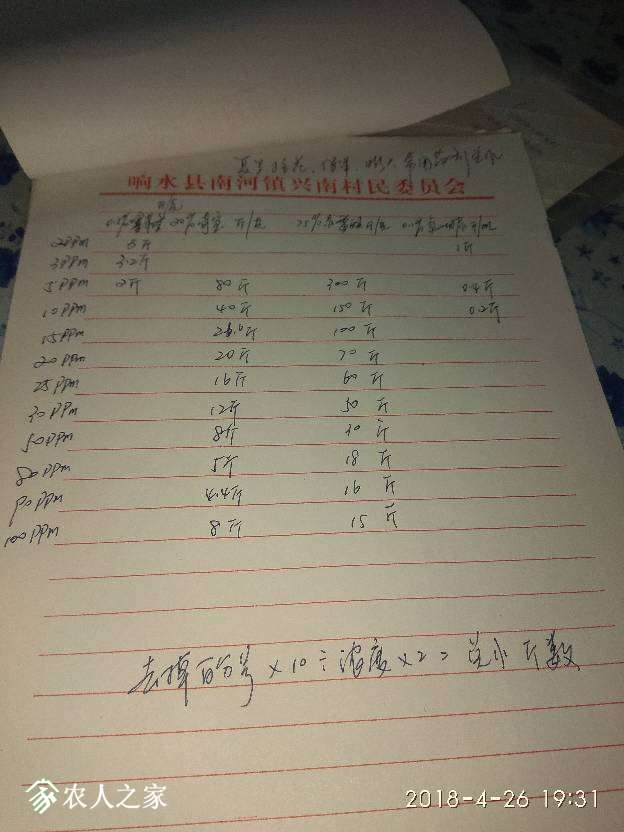 常用药剂
响水县南河镇兴南村民委员会
20% 斤/克 25% 斤/ 0.1%
2PPm 5斤 1斤
3PPm 3.2斤
5PPm 2斤 80斤 300斤 0.4斤
10PPm 40斤 150斤 0.2斤
15PPm 斤 100斤
20PPm 20斤 70斤
25PPm 16斤 60斤
30PPm 12斤 50斤
50PPm 8斤 30斤
80PPm 5斤 18斤
90PPm 4.4斤 16斤
100PPm 8斤 15斤
去掉百分号×10÷浓度×2=兑水斤数
农人之家
2018-4-26 19:31